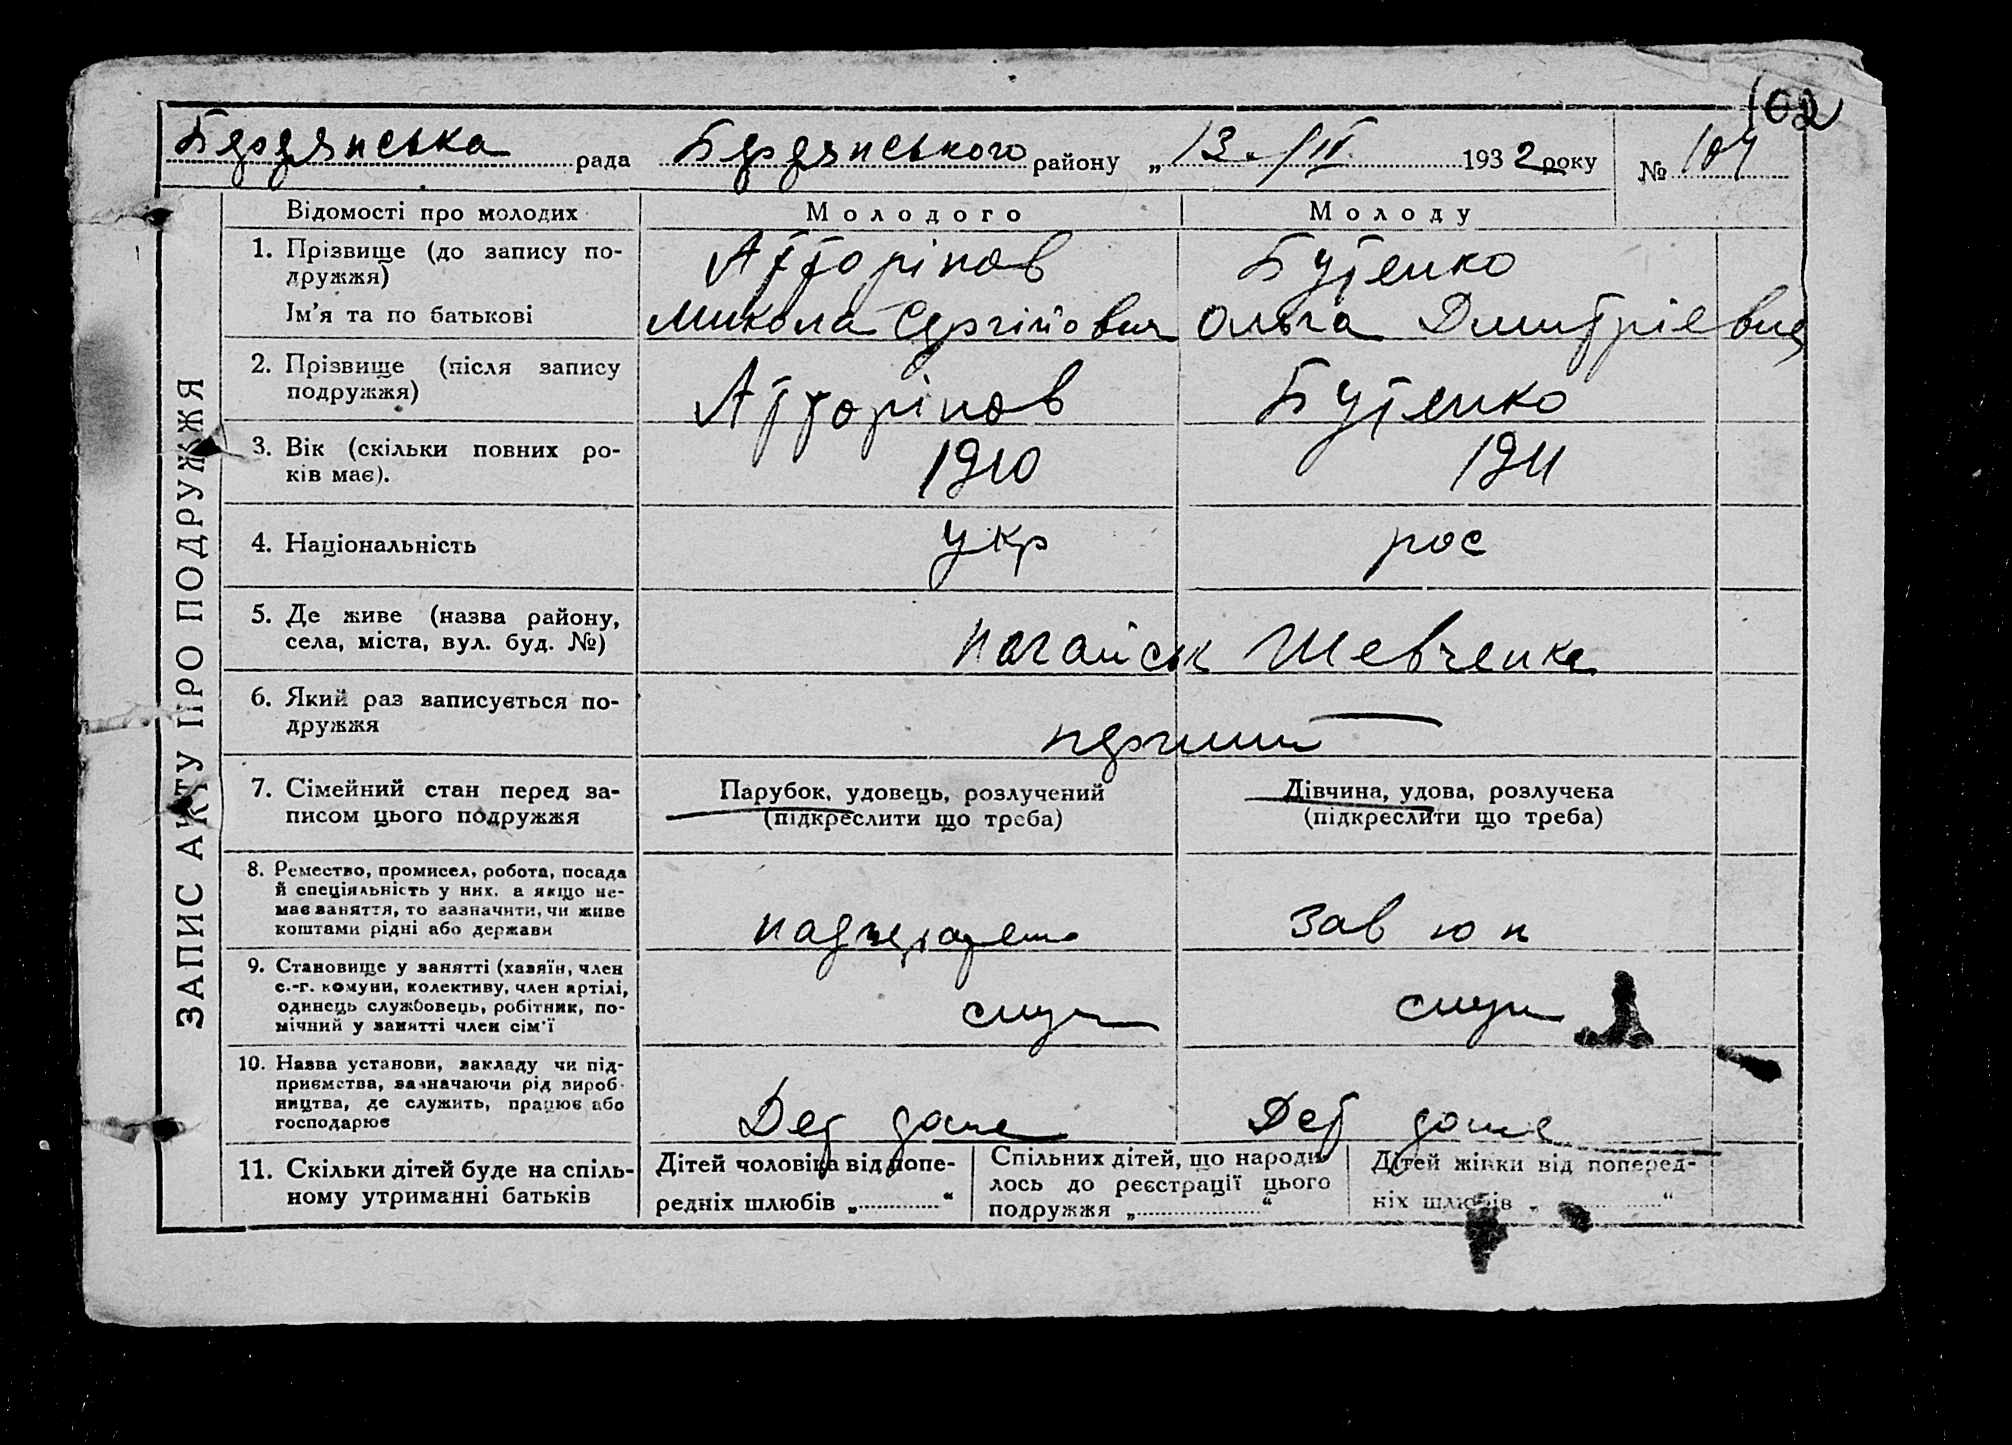 102
Бердянська рада Бердянського району „13“ III 1932 року № 104
ЗАПИС АКТУ ПРО ПОДРУЖЖЯ
Відомості про молодих Молодого Молоду
1. Прізвище (до запису по-
дружжя) Бутенко
Ім'я та по батькові Микола Сергійович Ольга Дмитрієвна
2. Прізвище (після запису
подружжя) Бутенко
3. Вік (скільки повних ро-
ків має). 1910 1911
4. Національність укр рос
5. Де живе (назва району,
села, міста, вул. буд. №) Ногайськ Шевченка
6. Який раз записується по-
дружжя перший
7. Сімейний стан перед за-
писом цього подружжя
Парубок, удовець, розлучений
(підкреслити що треба)
Дівчина, удова, розлучена
(підкреслити що треба)
8. Ремество, промисел, робота, посада
й спеціяльність у них, а якщо не-
має заняття, то зазначити, чи живе
коштами рідні або держави
зав
9. Становище у занятті (хазяїн, член
с.-г. комуни, колективу, член артілі,
одинець службовець, робітник, по-
мічний у занятті член сім'ї
служ служ
10. Назва установи, закладу чи під-
приємства, зазначаючи рід вироб-
ництва, де служить, працює або
господарює
Дет доме Дет доме
11. Скільки дітей буде на спіль-
ному утриманні батьків
Дітей чоловіка від попе-
редніх шлюбів „ “
Спільних дітей, що народи-
лось до реєстрації цього
подружжя „ “
Дітей жінки від поперед-
ніх шлюбів „ “